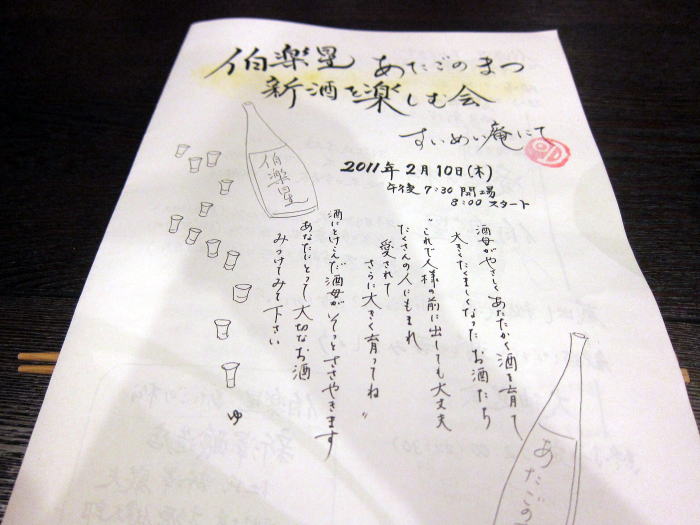 伯楽星 あたごのまつ
新酒を楽しむ会
すいめい庵にて
2011年2月10日(木)
午後7:30 開場
8:00 スタート
伯楽星
酒母がやさしくあたたかく酒を育て
大きくたくましくなったお酒たち
"これで人様の前に出しても大丈夫
たくさんの人にもまれ
愛されて
さらに大きく育ってね"
酒にとけこんだ酒母がそっとささやきます
あなたにとって大切なお酒
みつけてみて下さい
ゆ
あたごの